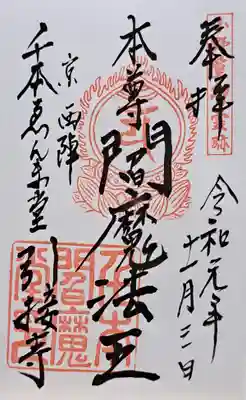 奉拝
令和元年
十一月三日
本尊
閻魔法王
京西陣
千本ゑんま堂
引接寺